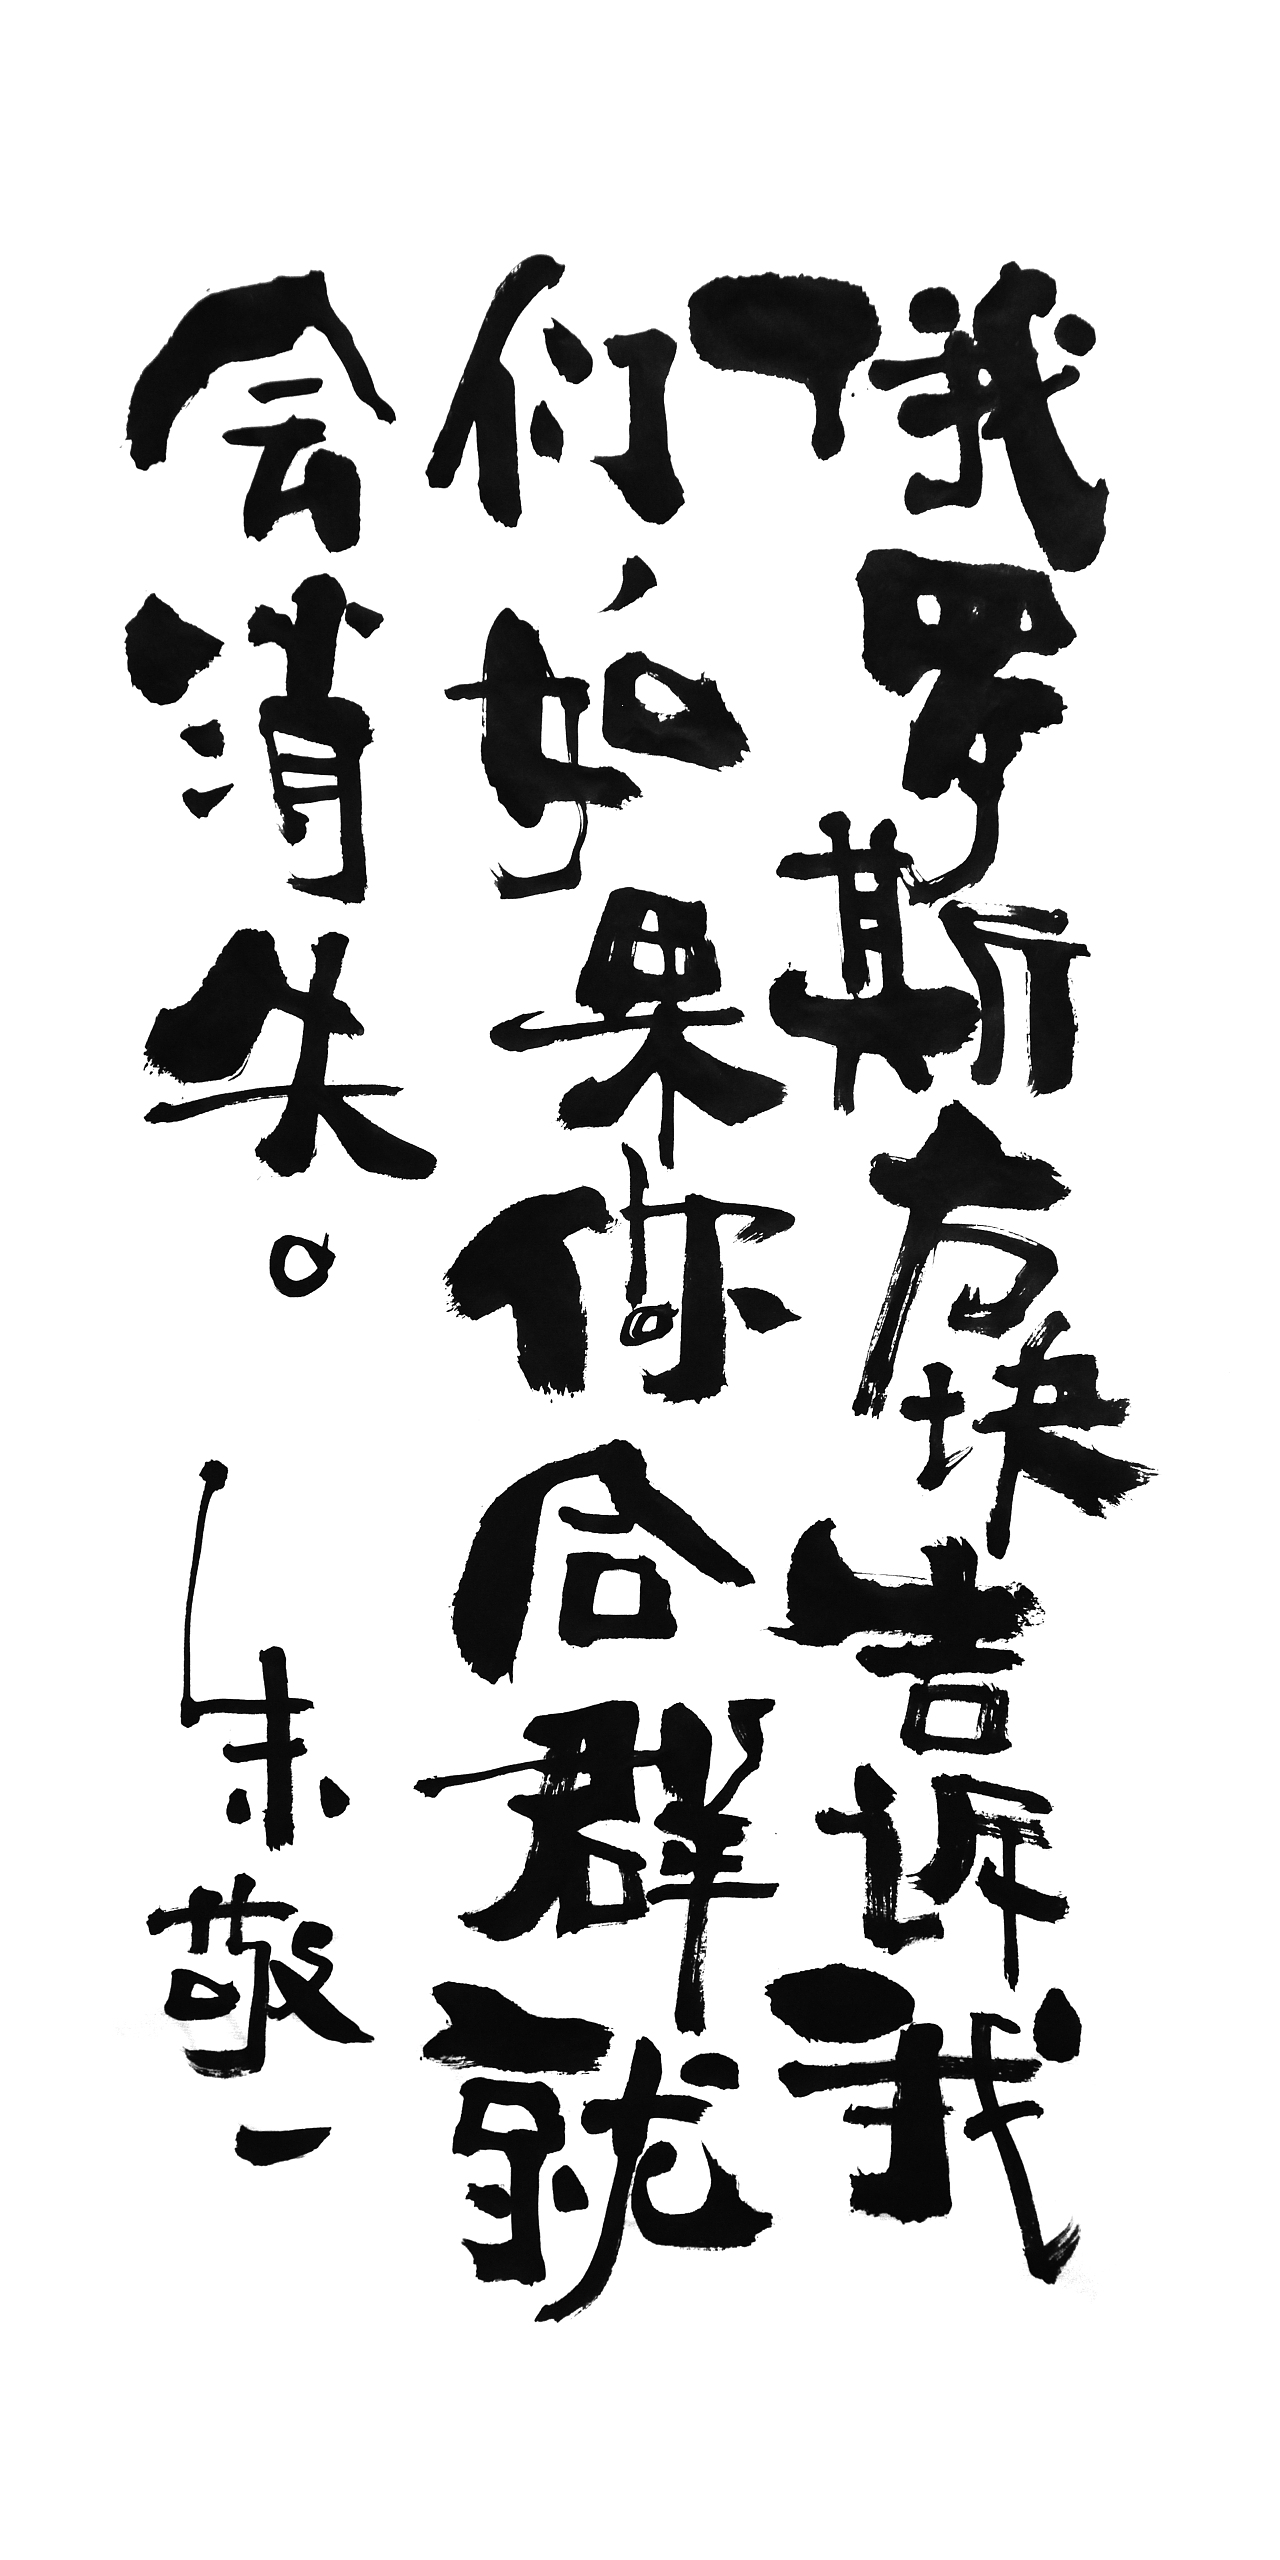 俄罗斯方块告诉我
们，如果你合群就
会消失。
朱敬一